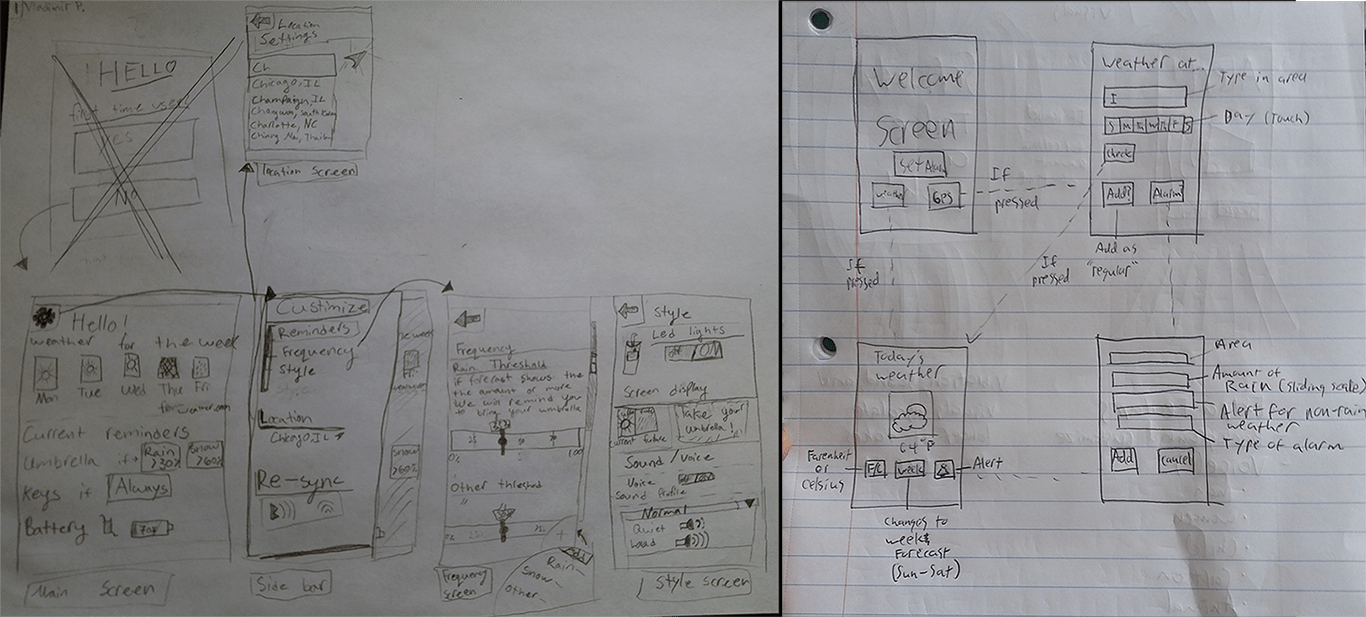 Vladimir P.
HELLO
first time user?
YES
No
Location
Settings
Ch
Chicago, IL
Champaign, IL
Charlotte, NC
location screen
Hello!
weather for the week
Mon
Tue
Wed
Thu
Fri
Current reminders
Umbrella if Rain >30% Snow >60%
Keys if Always
Battery 70%
Main Screen
Custimize
Reminders
Frequency
Style
Location
Chicago, IL
Re-sync
Side bar
he week
Fri
Snow >60%
Frequency
Rain Threshold
if forecast shows the
the amount or more
we will remind you
to bring your umbrella
0%
100
Other threshold
Rain
Snow
Other
Frequency
Screen
Style
Led lights
Off ON
Screen display
current future
Take your
umbrella!
Sound / Voice
Voice
Sound profile
Normal
Quiet
Loud
Style screen
Welcome
Screen
Set Alarm
weather
GPS
If
pressed
If
pressed
Weather at...
I
Type in area
S M T W Th F S
Day (touch)
check
Add?
Alarm?
Add as
"regular"
If
pressed
Today's
weather
64°F
Farenheit
or
celsius
F/C
week
Alert
Changes to
week's
Forecast
(Sun-Sat)
Area
Amount of
Rain (sliding scale)
Alert for non-rain
weather
Type of alarm
Add
cancel